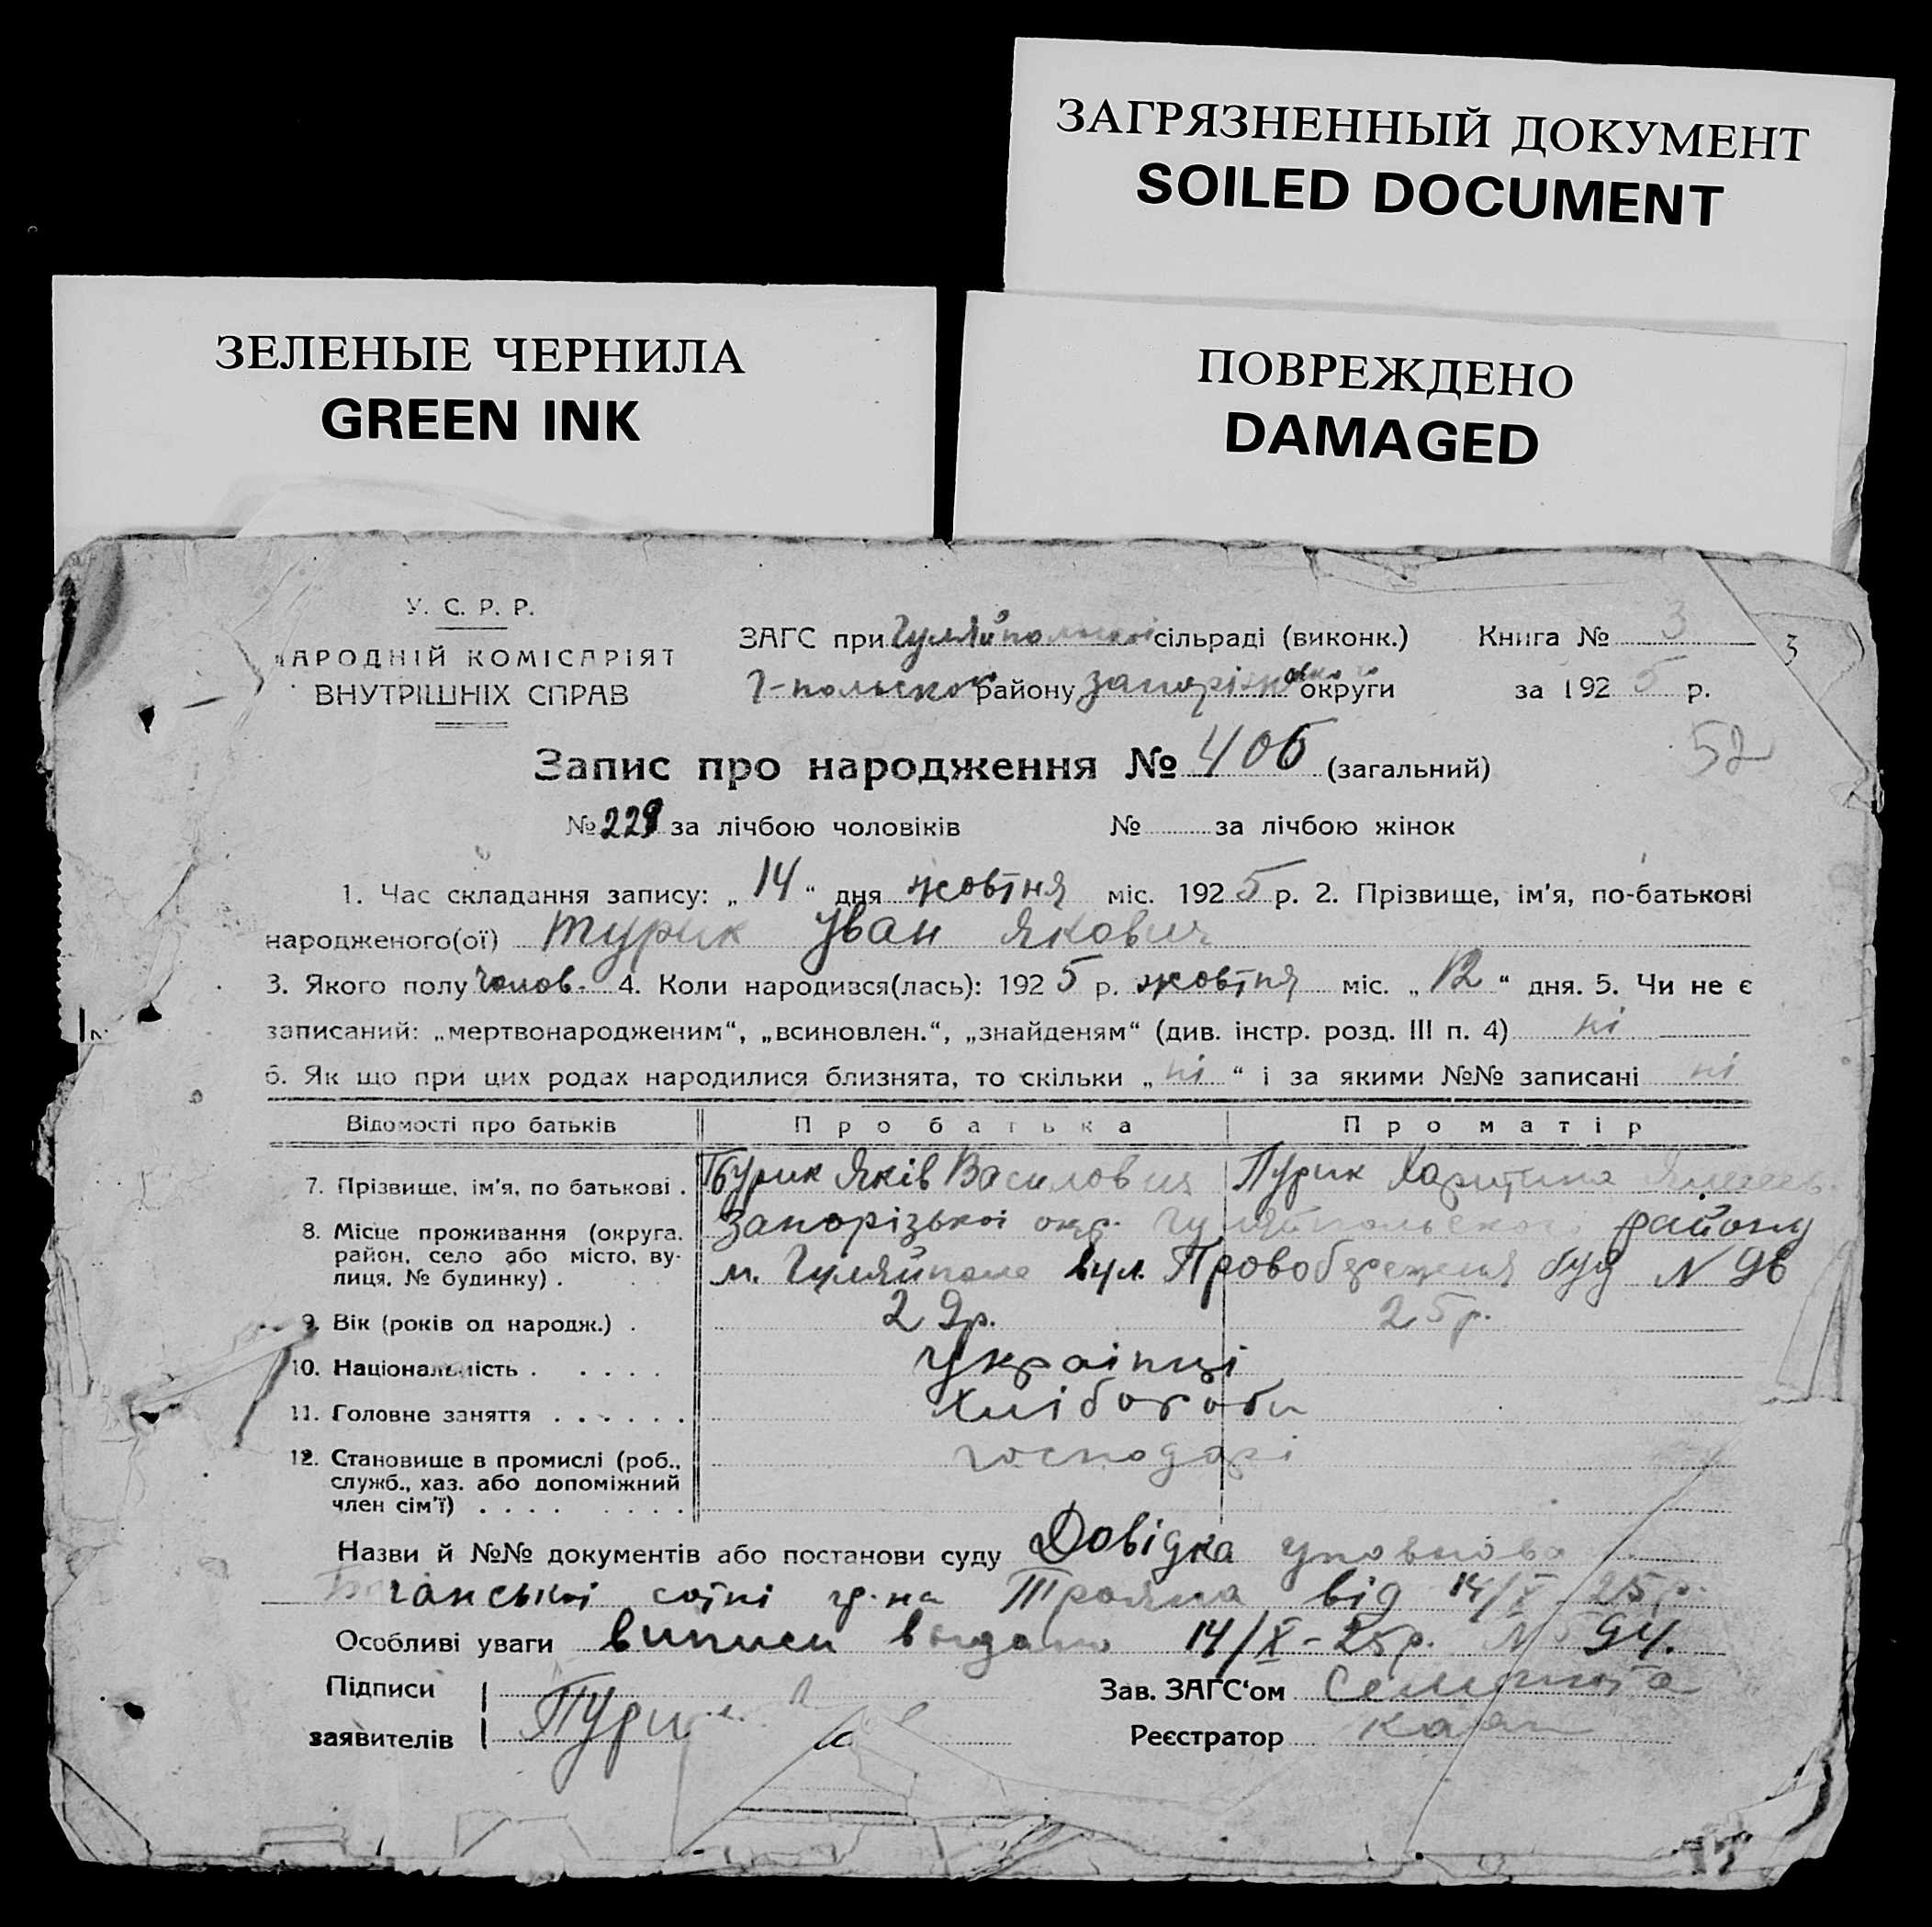 ЗАГРЯЗНЕННЫЙ ДОКУМЕНТ
SOILED DOCUMENT
ЗЕЛЕНЫЕ ЧЕРНИЛА
GREEN INK
ПОВРЕЖДЕНО
DAMAGED
У. С. Р. Р.
НАРОДНІЙ КОМІСАРІЯТ
ВНУТРІШНІХ СПРАВ
ЗАГС при Гуляйпольскої сільраді (виконк.) Книга № 3 3
Г-польского району Запорізької округи за 1925 р.
52
Запис про народження № 406 (загальний)
№ 228 за лічбою чоловіків № за лічбою жінок
1. Час складання запису: „ 14 “ дня жовтня міс. 1925 р. 2. Прізвище, ім'я, по-батькові
народженого(ої) Турик Іван Якович
3. Якого полу чолов. 4. Коли народився(лась): 1925 р. жовтня міс. „ 12 “ дня. 5. Чи не є
записаний: „мертвонародженим“, „всиновлен.“, „знайденям“ (див. інстр. розд. III п. 4) ні
6. Як що при цих родах народилися близнята, то скільки „ ні “ і за якими №№ записані ні
Відомості про батьків Про батька Про матір
7. Прізвище, ім'я, по батькові . Яків Василович Пурик
8. Місце проживання (округа, район, село або місто, вулиця, № будинку) . Запорізької окр. Гуляйпольского району
м. Гуляйполе вул. Провобережня буд N 96
9. Вік (років од народж.) . 29р. 25р.
10. Національність . . . . . українці
11. Головне заняття . . . . . . Хлібороби
12. Становище в промислі (роб., служб., хаз. або допоміжний член сім'ї) . . . . . . . . . господарі
Назви й №№ документів або постанови суду Довідка уповнова
сотні гр-на Трояна від 14/X 25р.
Особливі уваги виписи видано 14/X-25р. N 594.
Підписи
заявителів Пури
Зав. ЗАГС'ом
Реєстратор